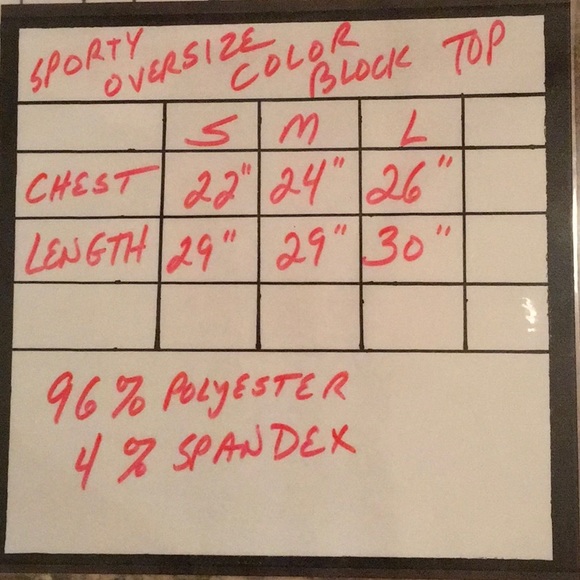 SPORTY OVERSIZE COLOR BLOCK TOP
S M L
CHEST 22" 24" 26"
LENGTH 29" 29" 30"
96% POLYESTER
4% SPANDEX